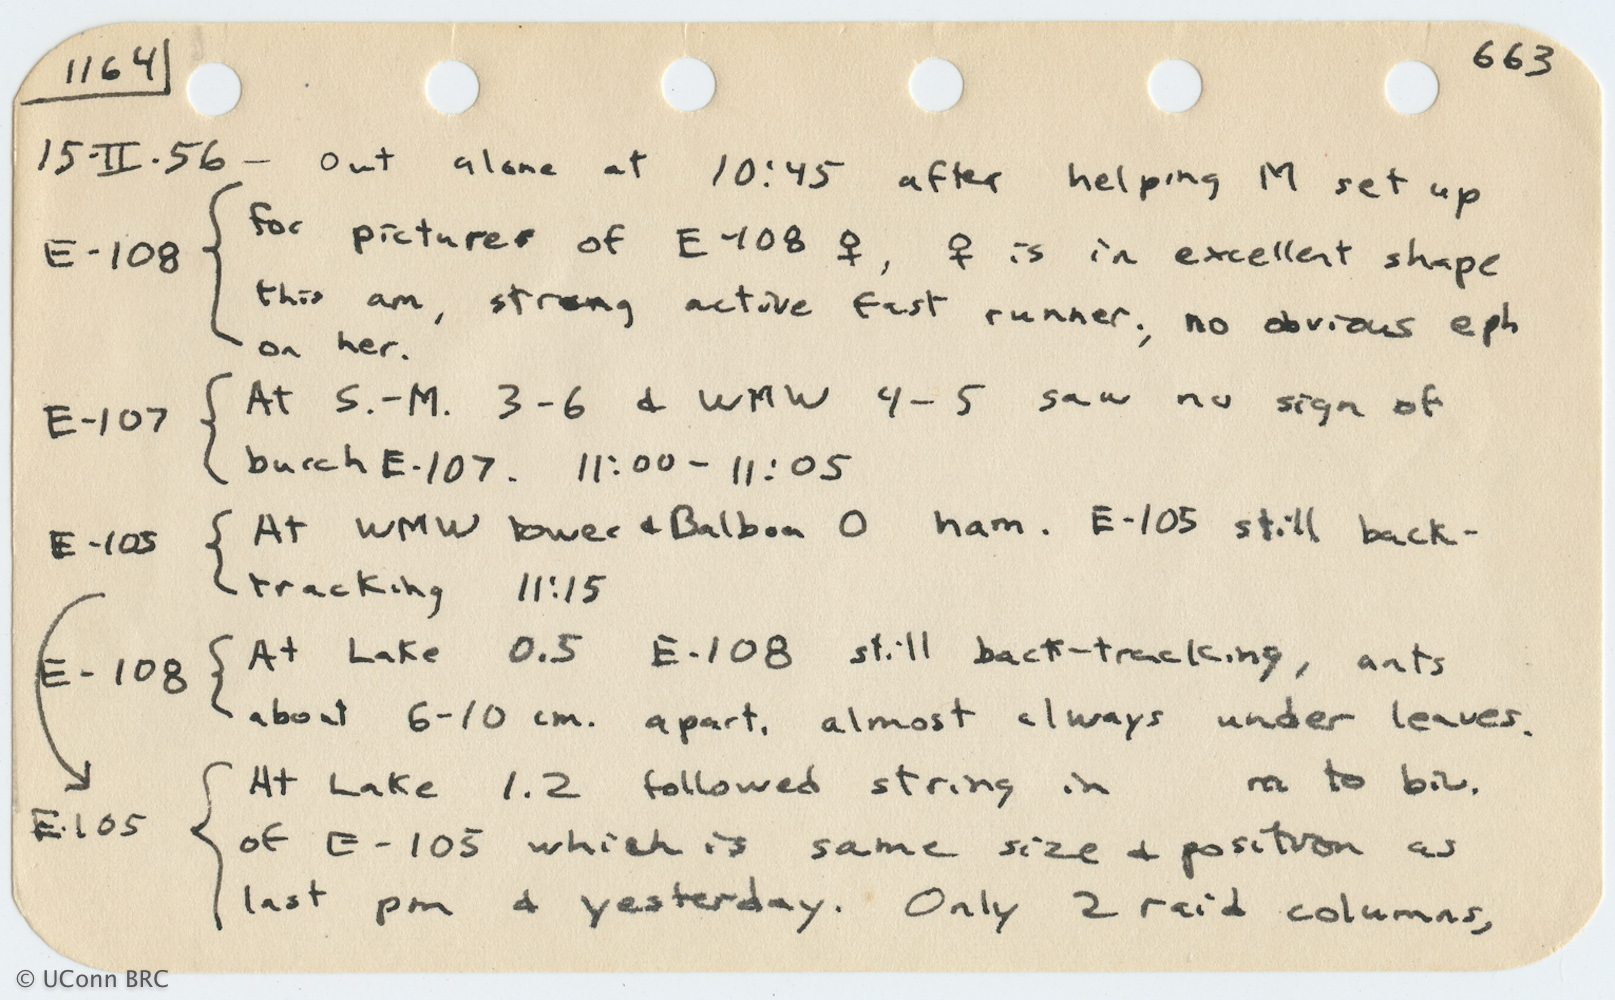 1164 663
15·II·56 — Out alone at 10:45 after helping M set up
E-108 for pictures of E-108 ♀, ♀ is in excellent shape
this am, strong active fast runner, no obvious eph
on her.
E-107 At S.-M. 3-6 & WMW 4-5 saw no sign of
burch E-107. 11:00 - 11:05
E-105 At WMW tower & Balboa 0 ham. E-105 still back-
tracking 11:15
E-108 At Lake 0.5 E-108 still back-tracking, ants
about 6-10 cm. apart, almost always under leaves.
At Lake 1.2 followed string in m to biv.
E-105 of E-105 which is same size & position as
last pm & yesterday. Only 2 raid columns,
© UConn BRC